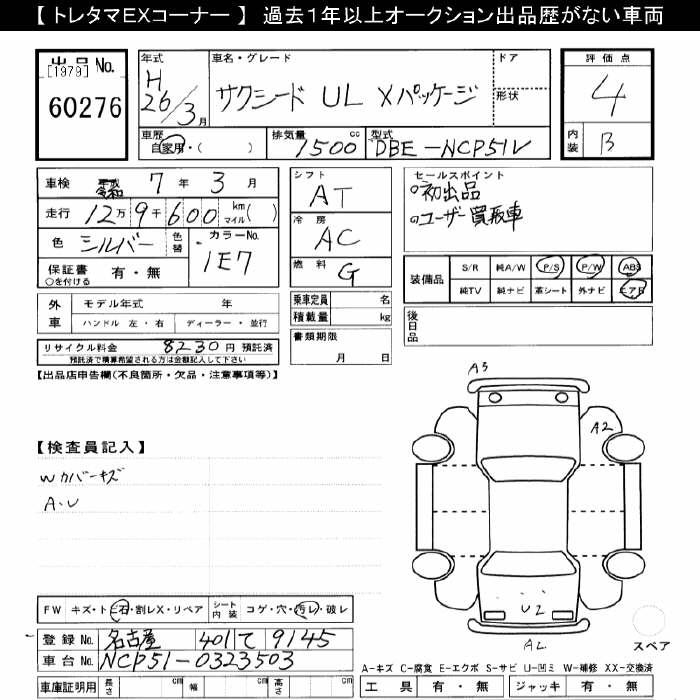 【 トレタマEXコーナー 】 過去１年以上オークション出品歴がない車両
出品 No.
[1979]
60276
年式
H
26/3月
車名・グレード
サクシード UL Xパッケージ
ドア
形状
評価点
4
内装
B
車歴
自家用・( )
排気量 cc
1500
型式
DBE-NCP51V
車検
令和 7年 3月
走行 12万9千600 km マイル( )
色 シルバー
色替
カラーNo.
1E7
保証書
○を付ける
有・無
シフト
AT
冷房
AC
燃料
G
セールスポイント
○初出品
○ユーザー買取車
装備品 S/R 純A/W P/S P/W ABS
純TV 純ナビ 革シート 外ナビ エアB
外車
モデル年式 年
ハンドル 左・右 ディーラー・並行
乗車定員 名
積載量 kg
書類期限
月 日
後日品
リサイクル料金 8230円 預託済
預託済で精算希望される方は金額記入して下さい
【出品店申告欄(不良箇所・欠品・注意事項等)】
A3
A2
【検査員記入】
Wカバーキズ
A・U
U2
A2
FW キズ・ト石・割レX・リペア シート内装 コゲ・穴・汚レ・破レ
登録 No. 名古屋 401 て 9145
車台 No. NCP51-0323503
スペア
車庫証明用 長さ cm 幅 cm 高さ cm
A-キズ C-腐食 E-エクボ S-サビ U-凹ミ W-補修 XX-交換済
工具 有・無 ジャッキ 有・無